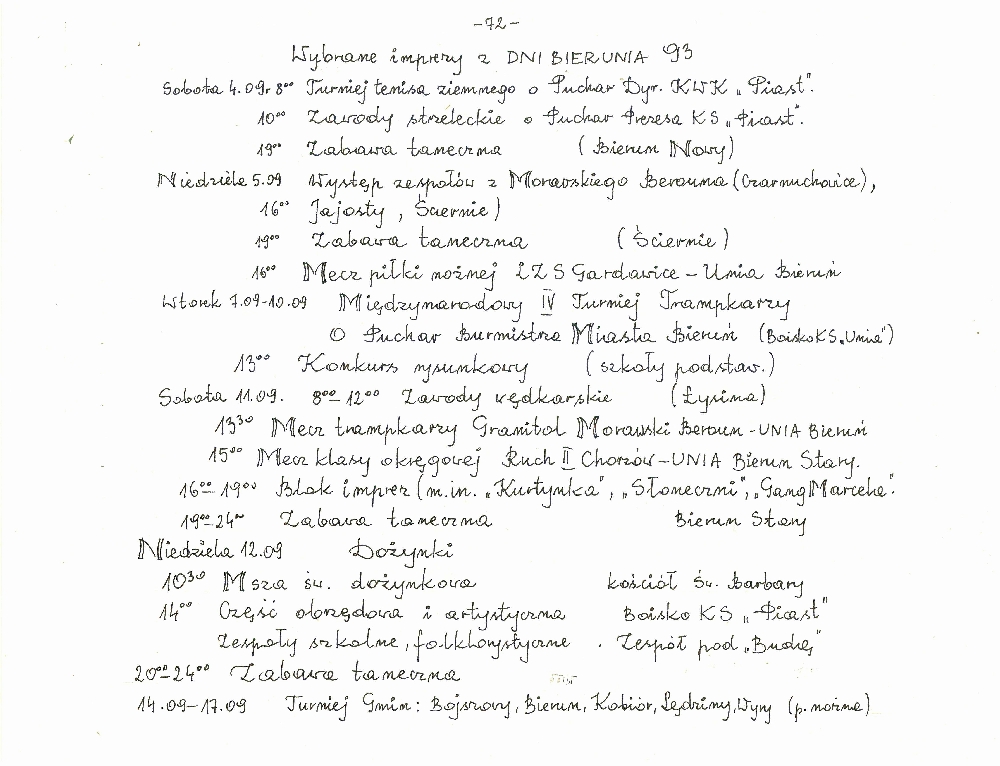 -72-
Wybrane imprezy z DNI BIERUNIA '93
Sobota 4.09r 8⁰⁰ Turniej tenisa ziemnego o Puchar Dyr. KWK „Piast".
10⁰⁰ Zawody strzeleckie o Puchar Prezesa KS „Piast".
19⁰⁰ Zabawa taneczna (Bieruń Nowy)
Niedziela 5.09 Występ zespołów z Morawskiego Berouna (Czarnuchowice),
16⁰⁰ Jajosty, Ściernie)
19⁰⁰ Zabawa taneczna (Ściernie)
16⁰⁰ Mecz piłki nożnej LZS Gardawice - Unia Bieruń
Wtorek 7.09-10.09 Międzynarodowy IV Turniej Trampkarzy
O Puchar Burmistrza Miasta Bieruń (Boisko KS „Unia")
13⁰⁰ Konkurs rysunkowy (szkoły podstaw.)
Sobota 11.09. 8⁰⁰-12⁰⁰ Zawody wędkarskie (Łysina)
13³⁰ Mecz trampkarzy Granitol Morawski Beroun - UNIA Bieruń
15⁰⁰ Mecz klasy okręgowej Ruch II Chorzów - UNIA Bieruń Stary.
16⁰⁰-19⁰⁰ Blok imprez (m.in. „Kurtynka", „Słoneczni", „Gang Marcela".
19⁰⁰-24⁰⁰ Zabawa taneczna Bieruń Stary
Niedziela 12.09 Dożynki
10³⁰ Msza św. dożynkowa kościół Św. Barbary
14⁰⁰ Część obrzędowa i artystyczna Boisko KS „Piast"
Zespoły szkolne, folklorystyczne. Zespół pod „Budą"
20⁰⁰-24⁰⁰ Zabawa taneczna
14.09-17.09 Turniej Gmin: Bojszowy, Bieruń, Kobiór, Lędziny, Wyry (p. nożna)